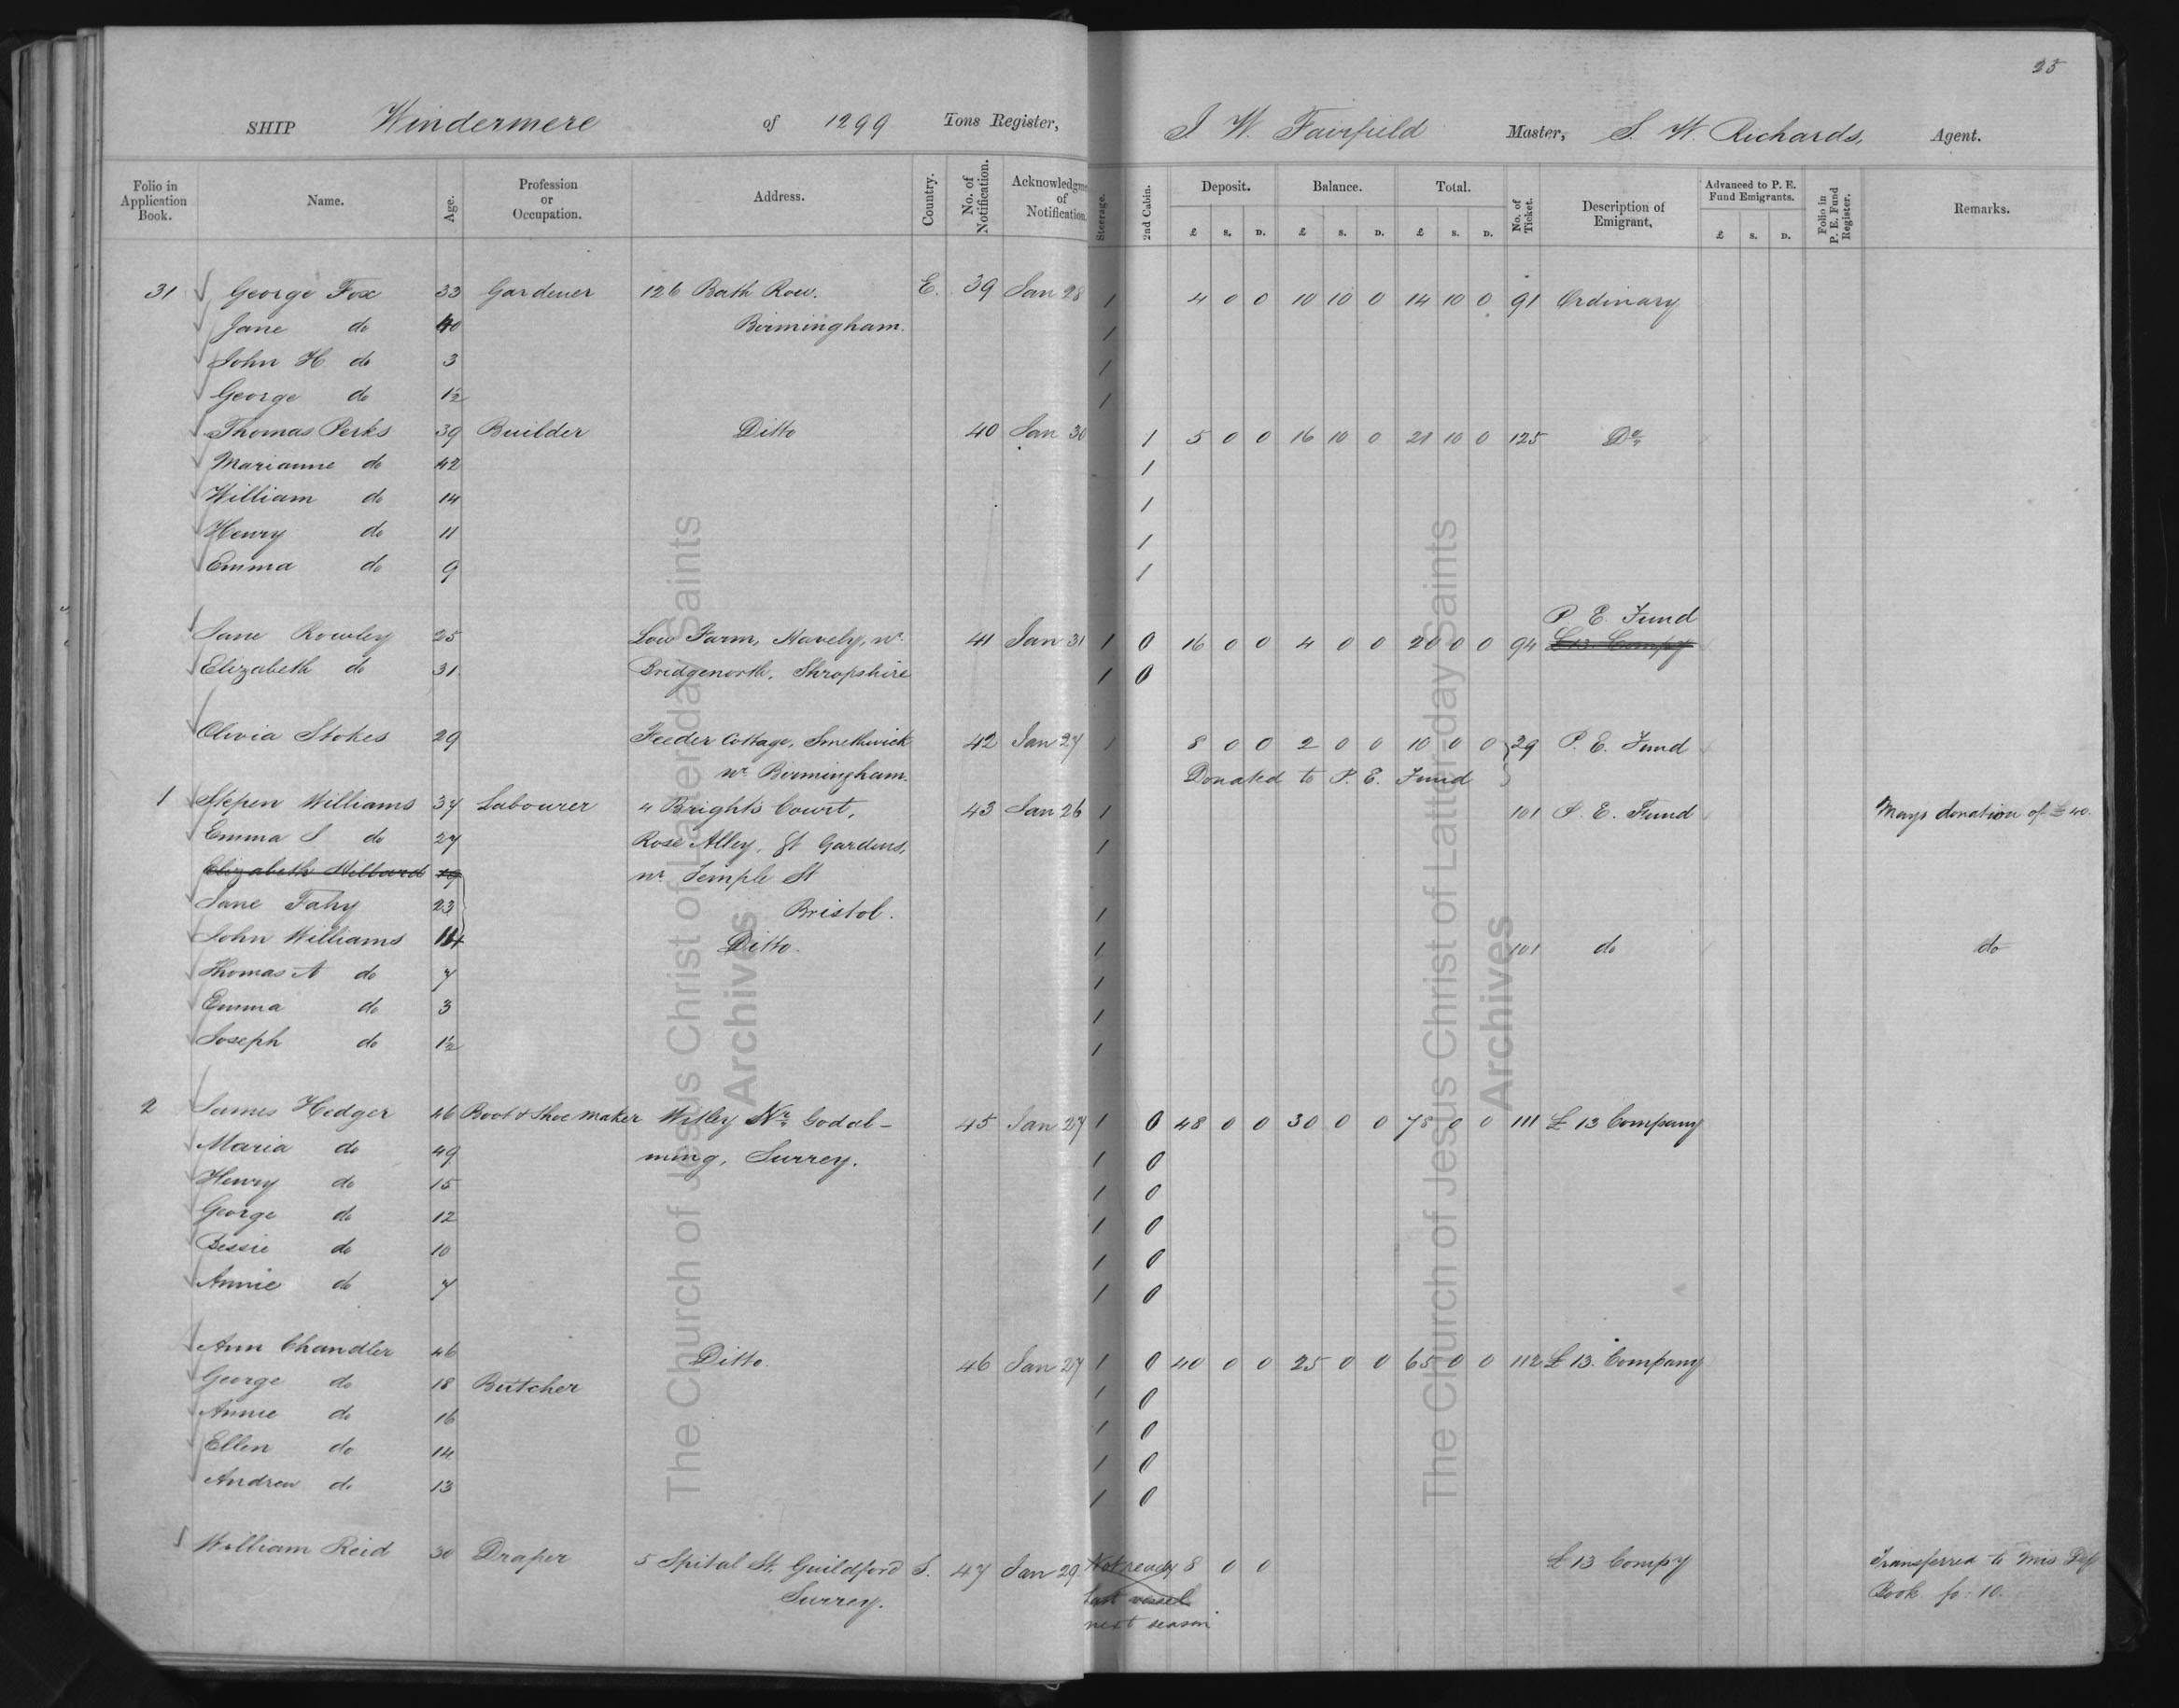 25
SHIP Windermere of 1299 Tons Register, J. W. Fairfield Master, S. W. Richards, Agent.
Folio in Application Book. Name. Age. Profession or Occupation. Address. Country. No. of Notification. Acknowledgme of Notification. Steerage. 2nd Cabin. Deposit. Balance. Total. No. of Ticket. Description of Emigrant. Advanced to P. E. Fund Emigrants. Folio in P. E. Fund Register. Remarks.
£ S. D. £ S. D. £ S. D. £ S. D.
31 George Fox 33 Gardener 126 Bath Row. E. 39 Jan 28 1 4 0 0 10 10 0 14 10 0 91 Ordinary
Jane do 40 Birmingham. 1
John H do 3 1
George do 1½ 1
Thomas Perks 39 Builder Ditto 40 Jan 30 1 5 0 0 16 10 0 21 10 0 125 Do
Marianne do 42 1
William do 14 1
Henry do 11 1
Emma do 9 1
P. E. Fund
Jane Rowley 25 Low Farm, Haveby, nr. 41 Jan 31 1 0 16 0 0 4 0 0 20 0 0 94 £13 Compy
Elizabeth do 31 Bridgenorth, Shropshire 1 0
Olivia Stokes 29 Feeder Cottage, Smethwick 42 Jan 27 1 8 0 0 2 0 0 10 0 0 } 29 P. E. Fund
nr. Birmingham. Donated to P. E. Fund
1 Stepen Williams 37 Labourer 4 Brights Court, 43 Jan 26 1 101 P. E. Fund Mays donation of £40.
Emma S do 27 Rose Alley, St Gardens, 1
Elizabeth 19 nr. Temple St
Jane Fahy 23 Bristol. 1
John Williams 14 Ditto. 1 101 do do
Thomas A do 7 1
Emma do 3 1
Joseph do 1½ 1
2 James Hedger 46 Boot & Shoe Maker Witley Nr. Godal- 45 Jan 27 1 0 48 0 0 30 0 0 78 0 0 111 £13 Company
Maria do 49 ming, Surrey. 1 0
Henry do 15 1 0
George do 12 1 0
Bessie do 10 1 0
Annie do 7 1 0
Ann Chandler 46 Ditto. 46 Jan 27 1 0 40 0 0 25 0 0 65 0 0 112 £13. Company
George do 18 Butcher 1 0
Annie do 16 1 0
Ellen do 14 1 0
Andrew do 13 1 0
William Reid 30 Draper 5 Spital St. Guildford S. 47 Jan 29. Not ready 8 0 0 £13 Compy Transferred to Mis Dep
Surrey. last vessel Book fo: 10.
next season
The Church of Jesus Christ of Latter-day Saints
Archives
The Church of Jesus Christ of Latter-day Saints
Archives